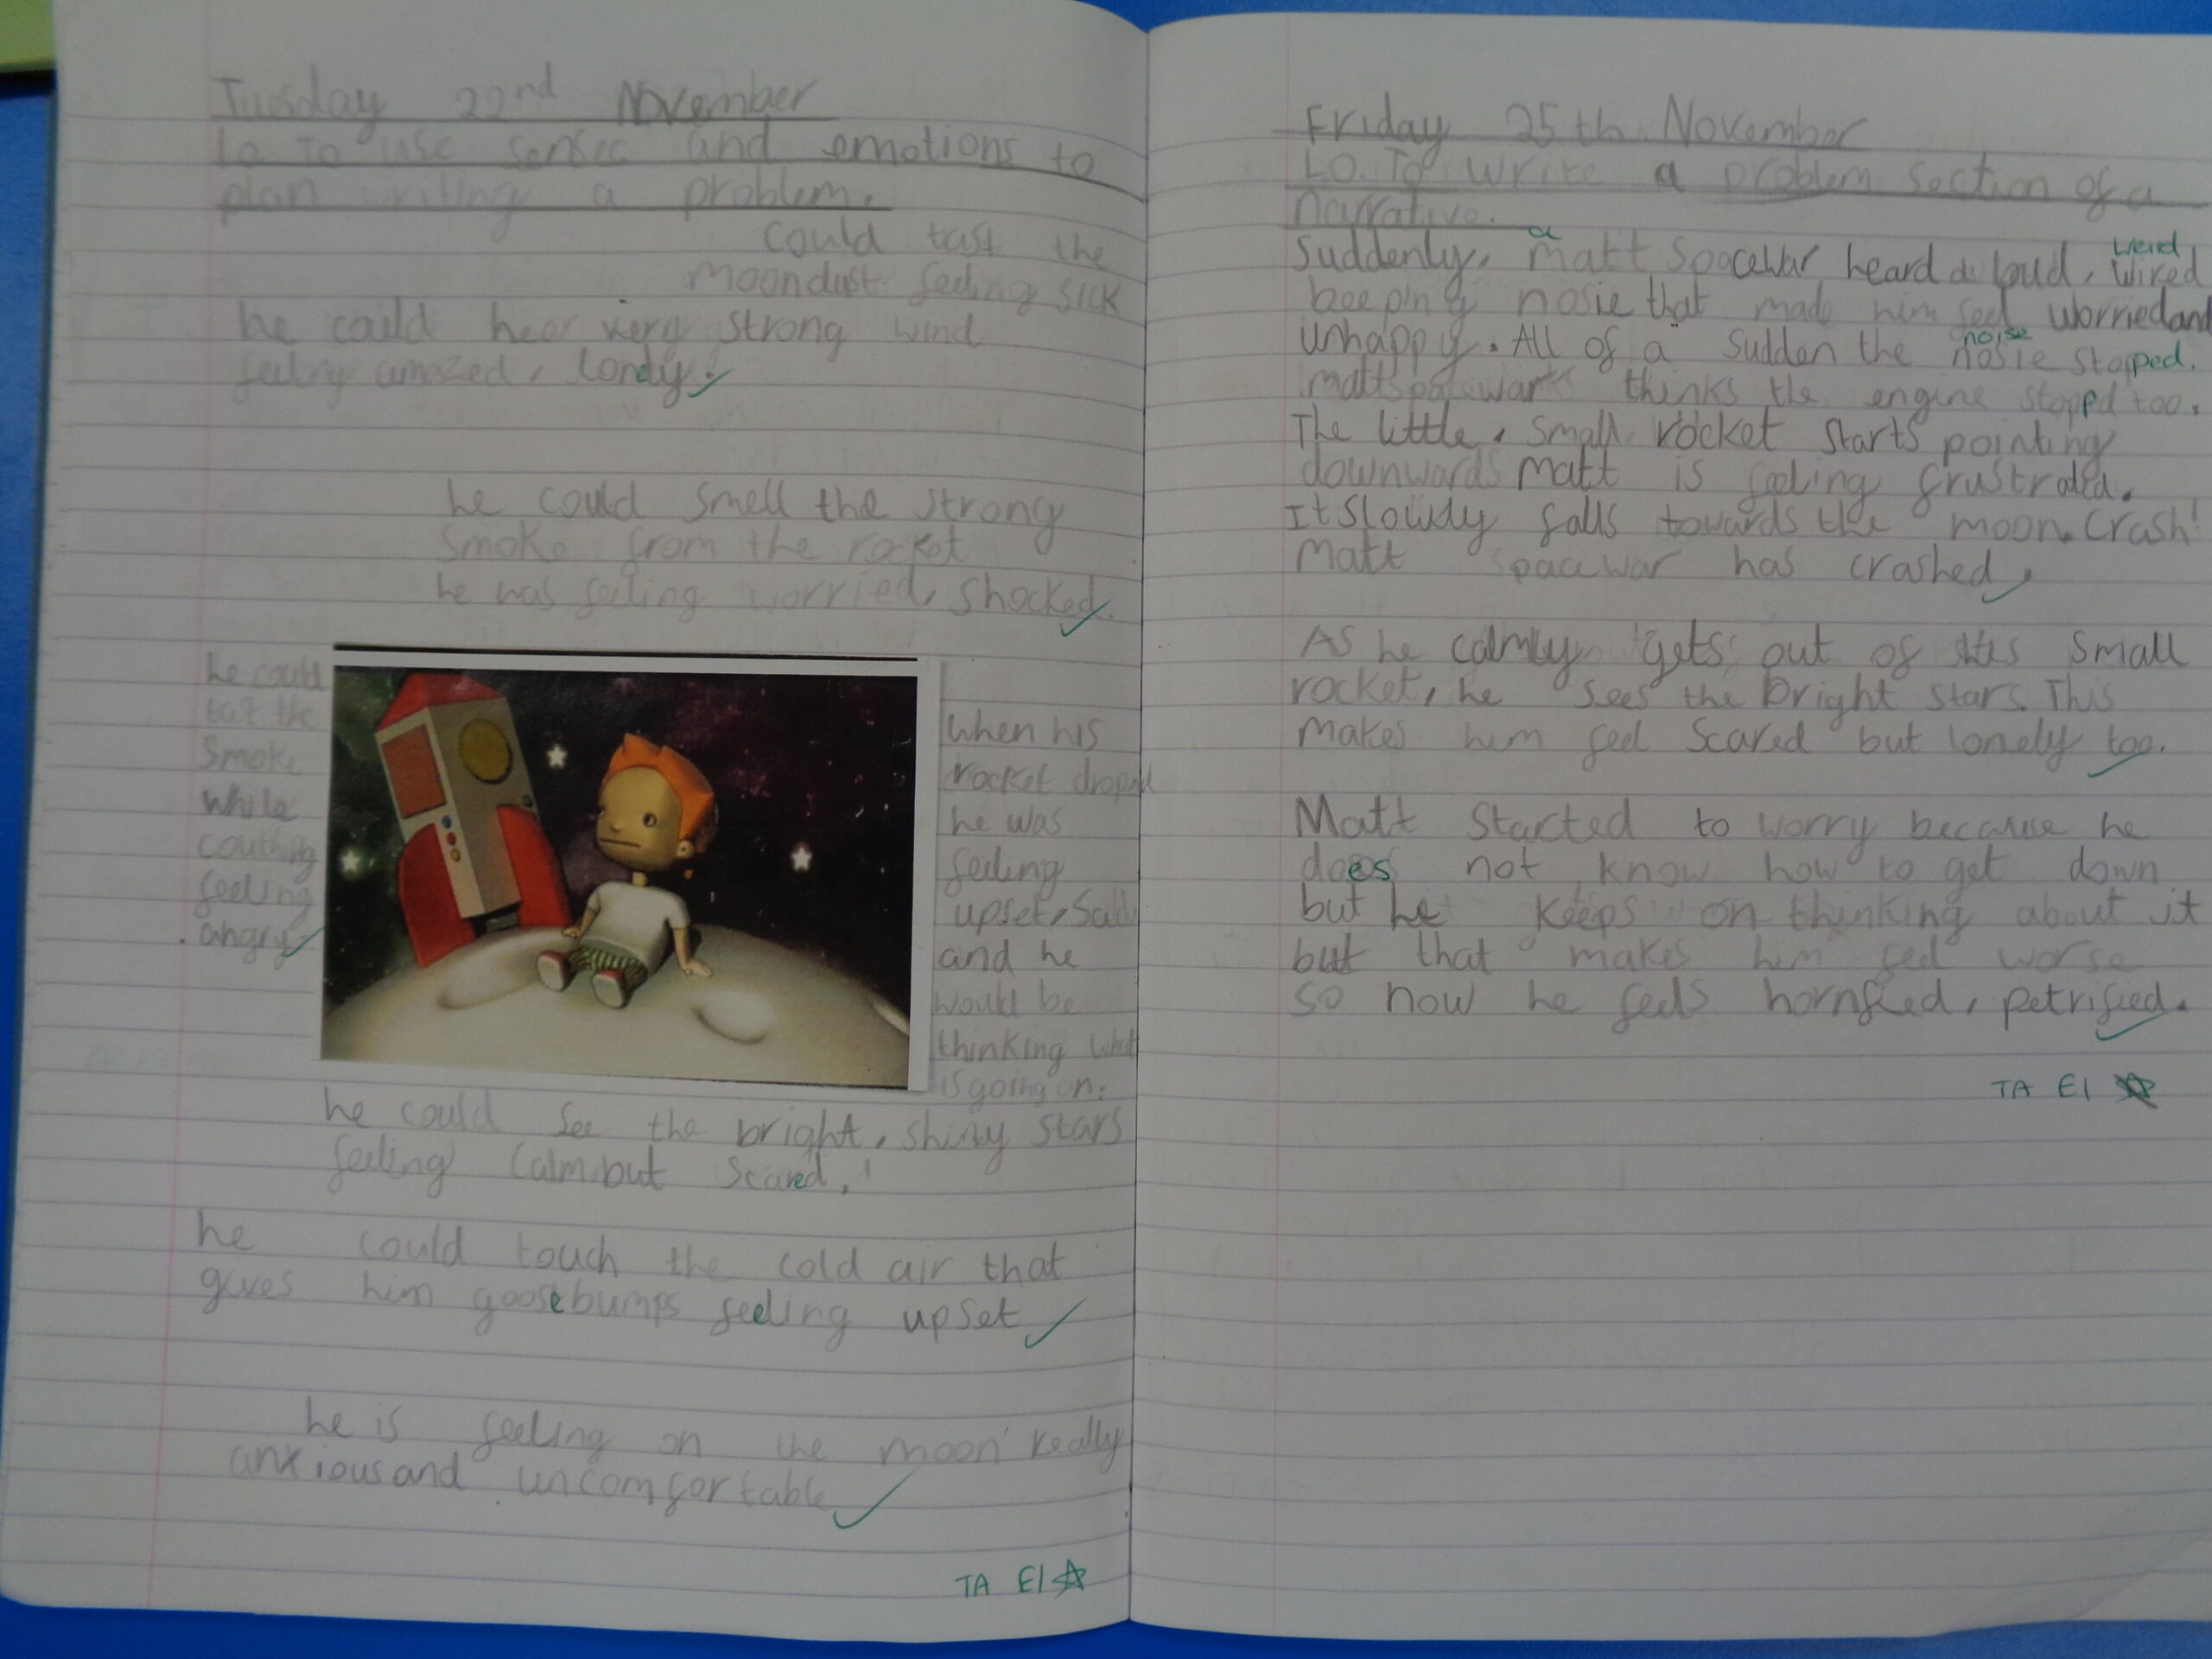 Tuesday 22nd November
Lo To use senses and emotions to
plan writing a problem.
could tast the
Moondust feeling sick
he could hear very strong wind
feeling amazed, lonely.
he could smell the strong
smoke from the rocket
he was feeling worried, shocked.
he could
tast the
smoke
while
feeling
angry
when his
rocket droped
he was
feeling
upset, sad
and he
would be
thinking what
is going on.
he could see the bright, shiny stars
feeling calm but scared.
he could touch the cold air that
gives him goosebumps feeling upset
he is feeling on the moon really
anxious and uncomfortable
TA EI
Friday 25th November
LO. To write a problem section of a
narrative.
a weird
Suddenly, matt Spacewar heard a loud, wired
beeping nosie that made him feel worried and
noise
unhappy. All of a sudden the nosie stopped.
matt spacewar thinks the engine stoppd too.
The little, small rocket starts pointing
downwards matt is feeling frustrated.
It slowly falls towards the moon. Crash!
Matt Spacewar has crashed
As he calmly gets out of his small
rocket, he sees the bright stars. This
makes him feel scared but lonely too.
Matt started to worry because he
does not know how to get down
but he keeps on thinking about it
but that makes him feel worse
so now he feels horrified, petrified.
TA EI